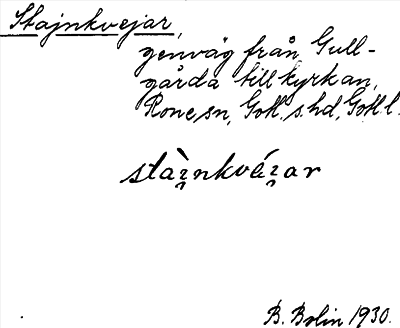 Stajnkvejar,
genväg från Gull-
gårda till kyrkan,
Rone sn, Gotl. s. hd, Gotl. l.
staı̨̀nkváı̨ar
B. Bolin 1930.